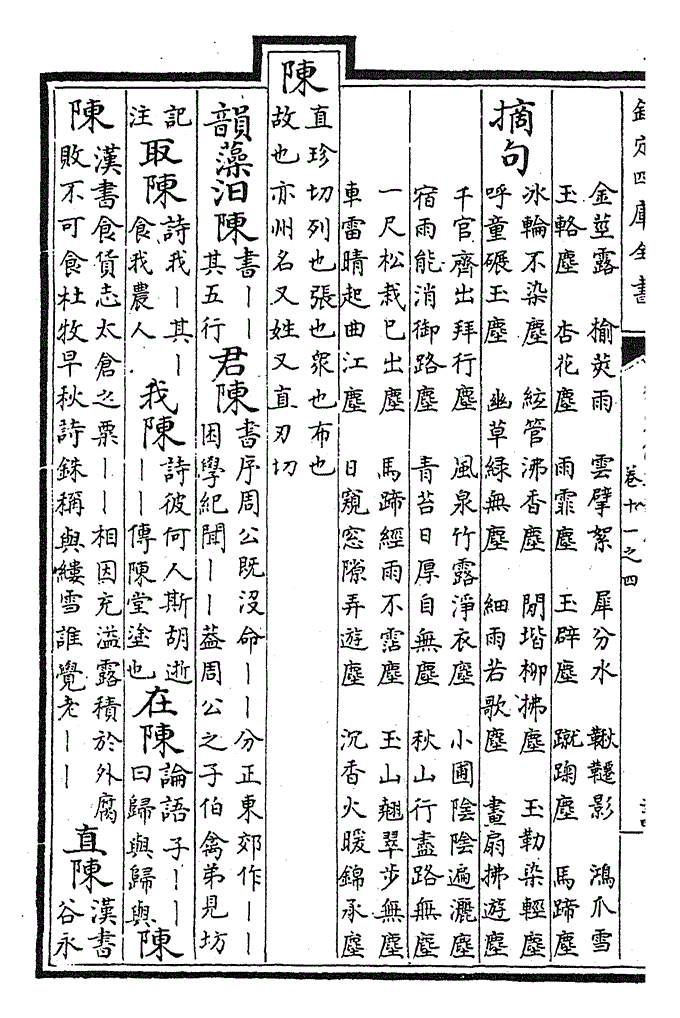 欽定四庫全書
卷十一之四
金莖露 榆莢雨 雲擘絮 犀分水 鞦韆影 鴻爪雪
玉輅塵 杏花塵 雨霏塵 玉辟塵 蹴踘塵 馬蹄塵
摘句
冰輪不染塵 絃管沸香塵 閒堦柳拂塵 玉勒染輕塵
呼童碾玉塵 幽草緑無塵 細雨若歌塵 畫扇拂遊塵
千官齊出拜行塵 風泉竹露淨衣塵 小圃陰陰遍灑塵
宿雨能消御路塵 青苔日厚自無塵 秋山行盡路無塵
一尺松栽已出塵 馬蹄經雨不霑塵 玉山翹翠步無塵
車雷晴起曲江塵 日窺窓隙弄遊塵 沉香火暖錦承塵
陳
直珍切列也張也衆也布也
故也亦州名又姓又直刃切
韻藻汩陳
書丨丨
其五行
君陳
書序周公既沒命丨丨分正東郊作丨丨
困學紀聞丨丨葢周公之子伯禽弟見坊
記
注
取陳
詩我丨其丨
食我農人
我陳
詩彼何人斯胡逝
丨丨傳陳堂塗也
在陳
論語子丨丨
曰歸與歸與
陳
陳
漢書食貨志太倉之粟丨丨相因充溢露積於外腐
敗不可食杜牧早秋詩銖稱與縷雪誰覺老丨丨
直陳
漢書
谷永